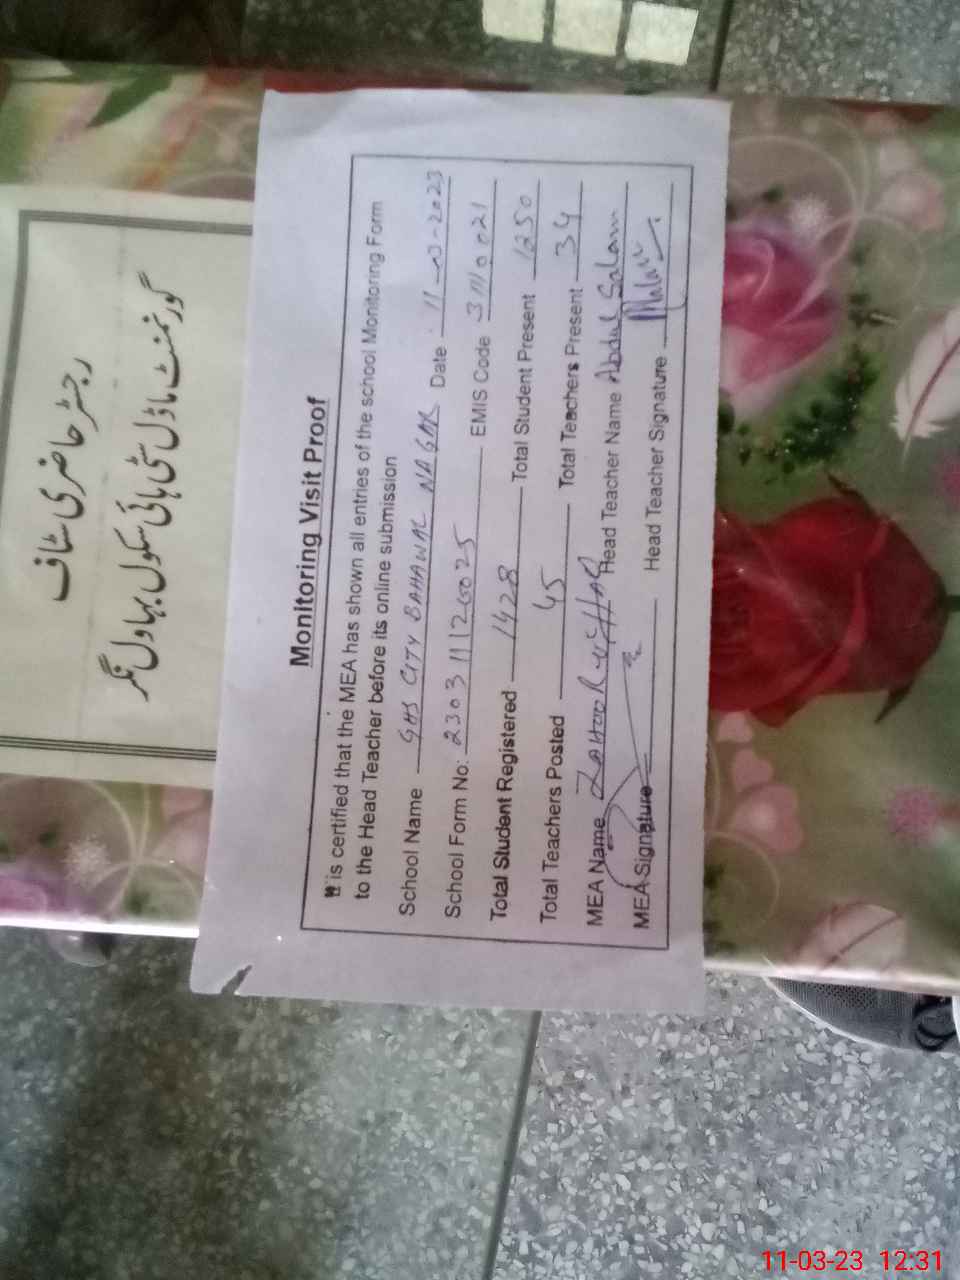 رجسٹر حاضری سٹاف
گورنمنٹ ماڈل سٹی ہائی سکول بہاول نگر
Monitoring Visit Proof
It is certified that the MEA has shown all entries of the school Monitoring Form
to the Head Teacher before its online submission
School Name GHS CITY BAHAWAL NAGAR Date 11-03-2023
School Form No: EMIS Code 31110021
Total Student Registered 1428 Total Student Present 1250
Total Teachers Posted 45 Total Teachers Present 34
MEA Name ZAHOOR Head Teacher Name Abdul Salam
MEA Signature Head Teacher Signature
11-03-23 12:31